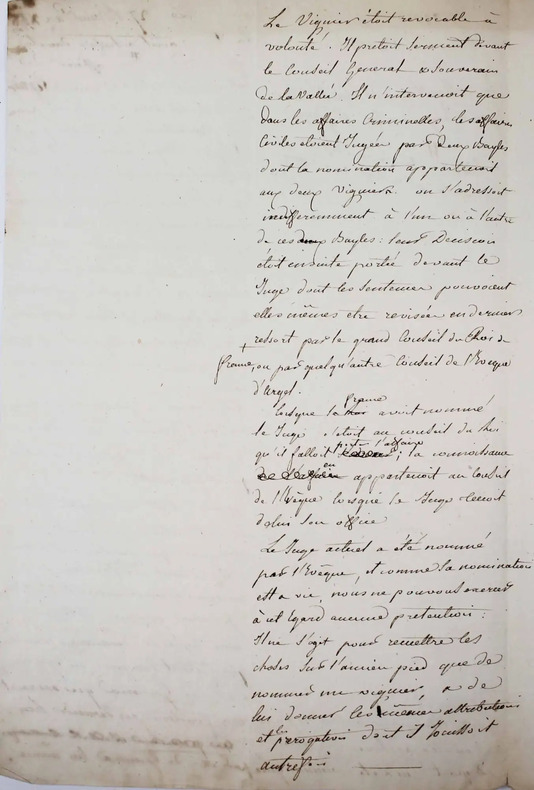 Le Viguier étoit revocable à
volonté. Il pretoit serment devant
le Conseil General & Souverain
de la Vallée. Il n'intervenoit que
dans les affaires Criminelles, les affaires
Civiles etoient Jugées par deux Bayles
dont la nomination appartenoit
aux deux Viguiers. on s'adressoit
indifferemment à l'un ou à l'autre
de ces deux Bayles: leur Decision
étoit ensuite portée devant le
Juge dont les sentences pouvoient
elles mêmes etre revisées en dernier
ressort par le grand Conseil du Roi de
france, ou par quelqu'autre Conseil de l'Eveque
d'Urgel.
Lorsque la france avoit nommé
le Juge c'étoit au conseil du Roi
qu'il falloit porter l'affaire; la connoissance
en appartenoit au Conseil
de l'Evêque lorsque le Juge tenoit
de lui son office
Le Juge actuel a été nommé
par l'Evêque, et comme sa nomination
est a vie, nous ne pouvons exercer
à cet égard aucune pretention:
Il ne s'agit pour remettre les
choses sur l'ancien pied que de
nommer un viguier, & de
lui donner les mêmes attributions
et les parogatives dont J Jouissoit
autrefois